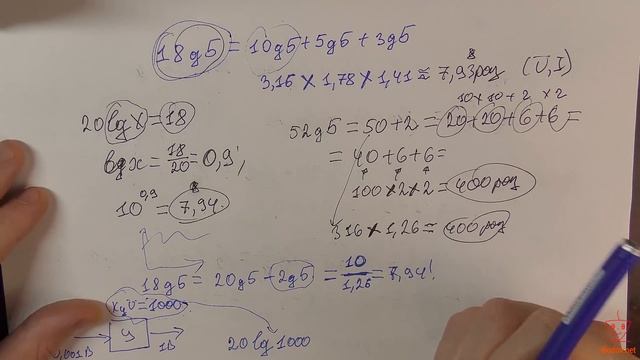 18дБ = 10дБ + 5дБ + 3дБ
8
3,16 × 1,78 × 1,41 ≈ 7,93раз (U,I)
20lgX = 18
lgx = 18/20 = 0,9;
8
10^0,9 = 7,94.
10 × 10 + 2 × 2
52дБ = 50+2 = 20+20+6+6 =
= 40+6+6=
100×2×2 = 400раз
316 × 1,26 = 400раз
18дБ = 20дБ - 2дБ = 10/1,26 = 7,94!
КдU = 1000
У
0,001В 1В 20lg1000